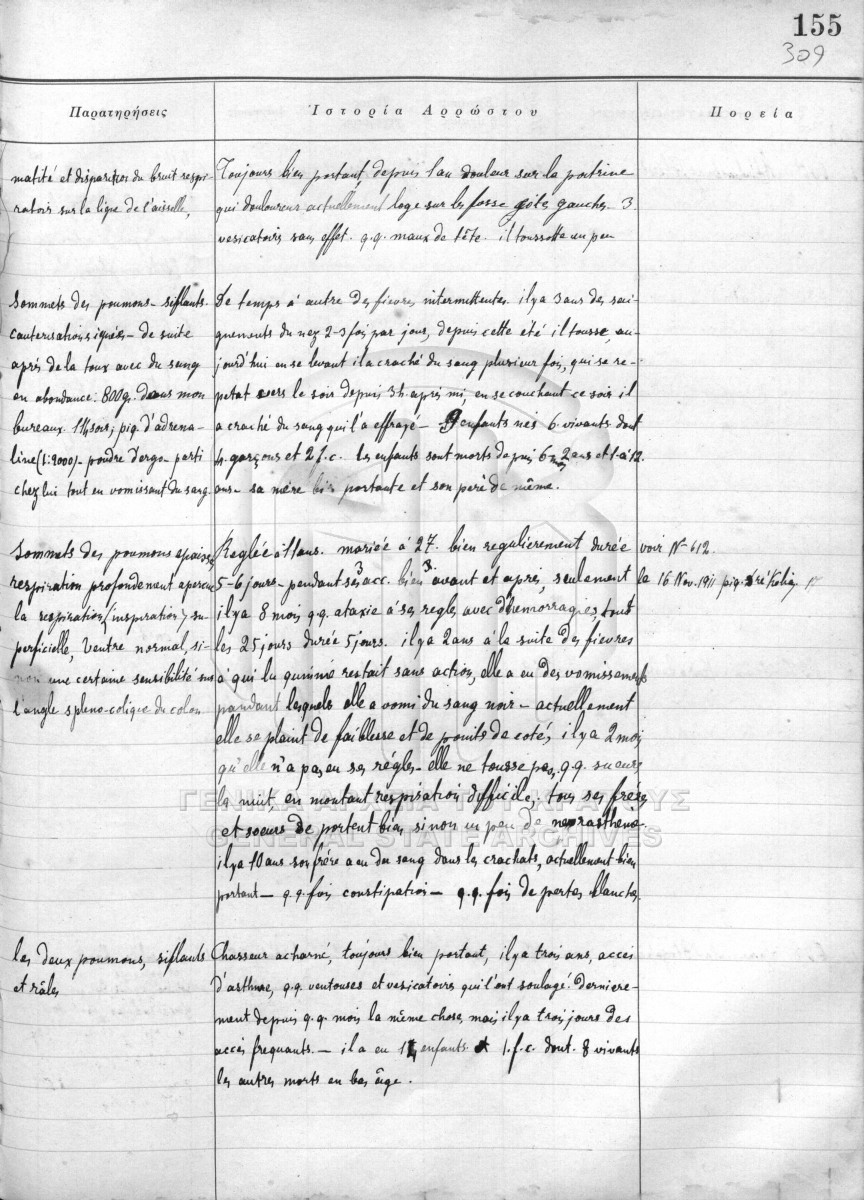 155
309
Παρατηρήσεις
Ἱστορία Ἀρρώστου
Πορεία
matité et disparition du bruit respi-
ratoir sur la ligne de l'aiselle,
Toujours bien portant depuis 1 an douleur sur la poitrine
qui douloureux actuellement loge sur les fosse gauche. 3
vesicatoirs sans effet. q.q. maux de tête. il toussotte un peu
Sommets des poumons - siflants.
cauterisations ignées - de suite
après de la toux avec du sang
en abondance: 800g. dans mon
bureaux. piq. d'adrena-
line (1:1000) - poudre d'ergo - parti
chez lui tout en vomissant du sang.
De temps à autre des fievres intermittentes. il y a 3 ans des sai-
gnements du nez 2-3 fois par jours, depuis cette été il tousse, au-
jourd'hui en se levant il a craché du sang plusieur fois, qui se re-
petat vers le soir depuis 3h après mi, en se couchant ce soir il
a craché du sang qui l'a effrayé - 9 enfants nés 6 vivants dont
4 garçons et 2 f.c. les enfants sont morts depuis 2 ans et 1 à 12
ans - sa mère bien portante et son père de même.
Sommets des poumons epaisse
respiration profondement
la respiration (inspiration) su-
perficielle, Ventre normal, si-
non une certaine sensibilité sur
l'angle spleno-colique du colon
Reglée ans. mariée à 27. bien regulierement durée
5-6 jours - pendant ses 3 acc. bien avant et après, seulement
il y a 8 mois q.q. ataxie à ses regles avec d'hemorragies, tout
les 25 jours durée 5 jours. il y a 2 ans à la suite des fievres
à qui la quinine restait sans action, elle a eu des vomissements
pendant lesquels elle a vomi du sang noir - actuellement
elle se plaint de faiblesse et de points de coté, il y a 2 mois
qu'elle n'a pas eu ses régles - elle ne tousse pas, q.q. sueurs
la nuit, en montant respiration difficile, tous ses frères
et soeurs se portent bien sinon un peu de
il y a 10 ans son frère a eu du sang dans les crachats, actuellement bien
portant - q.q. fois constipation - q.q. fois de pertes blanches.
voir N- 412.
le 16 Nov. 1911 piq.
ΓΕΝΙΚΑ ΑΡΧΕΙΑ ΤΟΥ ΚΡΑΤΟΥΣ
GENERAL STATE ARCHIVES
les deux poumons, siflants
et râles
Chasseur acharné, toujours bien portant, il y a trois ans, accès
d'asthme, q.q. ventouses et vesicatoirs qui l'ont soulagé. Derniere-
ment depuis q.q. mois la même chose, mais il y a trois jours des
accès frequants. - il a eu enfants et 1.f.c. dont 8 vivants
les autres morts en bas âge.